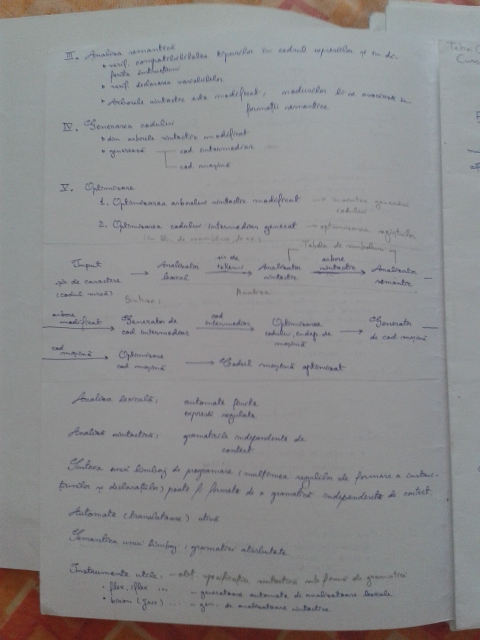 III. Analiza semantică
• verif. compatibilitatea tipurilor în cadrul expresiilor și în di-
ferite instrucțiuni
• verif. declararea variabilelor
• Arborele sintactic este modificat, nodurilor li se asociază in-
formații semantice
IV. Generarea codului
• din arborele sintactic modificat
• generează cod intermediar
cod mașină
V. Optimizare
1. Optimizarea arborelui sintactic modificat → generării
codului
2. Optimizarea codului intermediar generat → optimizarea regiștrilor
Tabela de simboluri
Input → Analizator lexical → șir de tokeni → Analizator sintactic → arbore sintactic → Analizator semantic
șir de caractere
(codul sursă)
Sinteza: Analiza
arbore modificat → Generator de cod intermediar → cod intermediar → Optimizarea codului, indep. de mașină → Generator de cod mașină
cod mașină → Optimizare cod mașină → Codul mașină optimizat
Analiza lexicală: automate finite
expresii regulate
Analiză sintactică: gramaticile independente de
context
Sintaxa unui limbaj de programare (mulțimea regulilor de formare a instruc-
țiunilor și declarațiilor) poate fi formată de o gramatică independentă de context.
Automate (translatoare) stivă
Semantica unui limbaj: gramatici atributate
Instrumente utile: specificația sintactică sub formă de gramatici
• flex, jflex ... – generatoare automate de analizatoare lexicale
• bison (yacc) ... – gen. de analizatoare sintactice